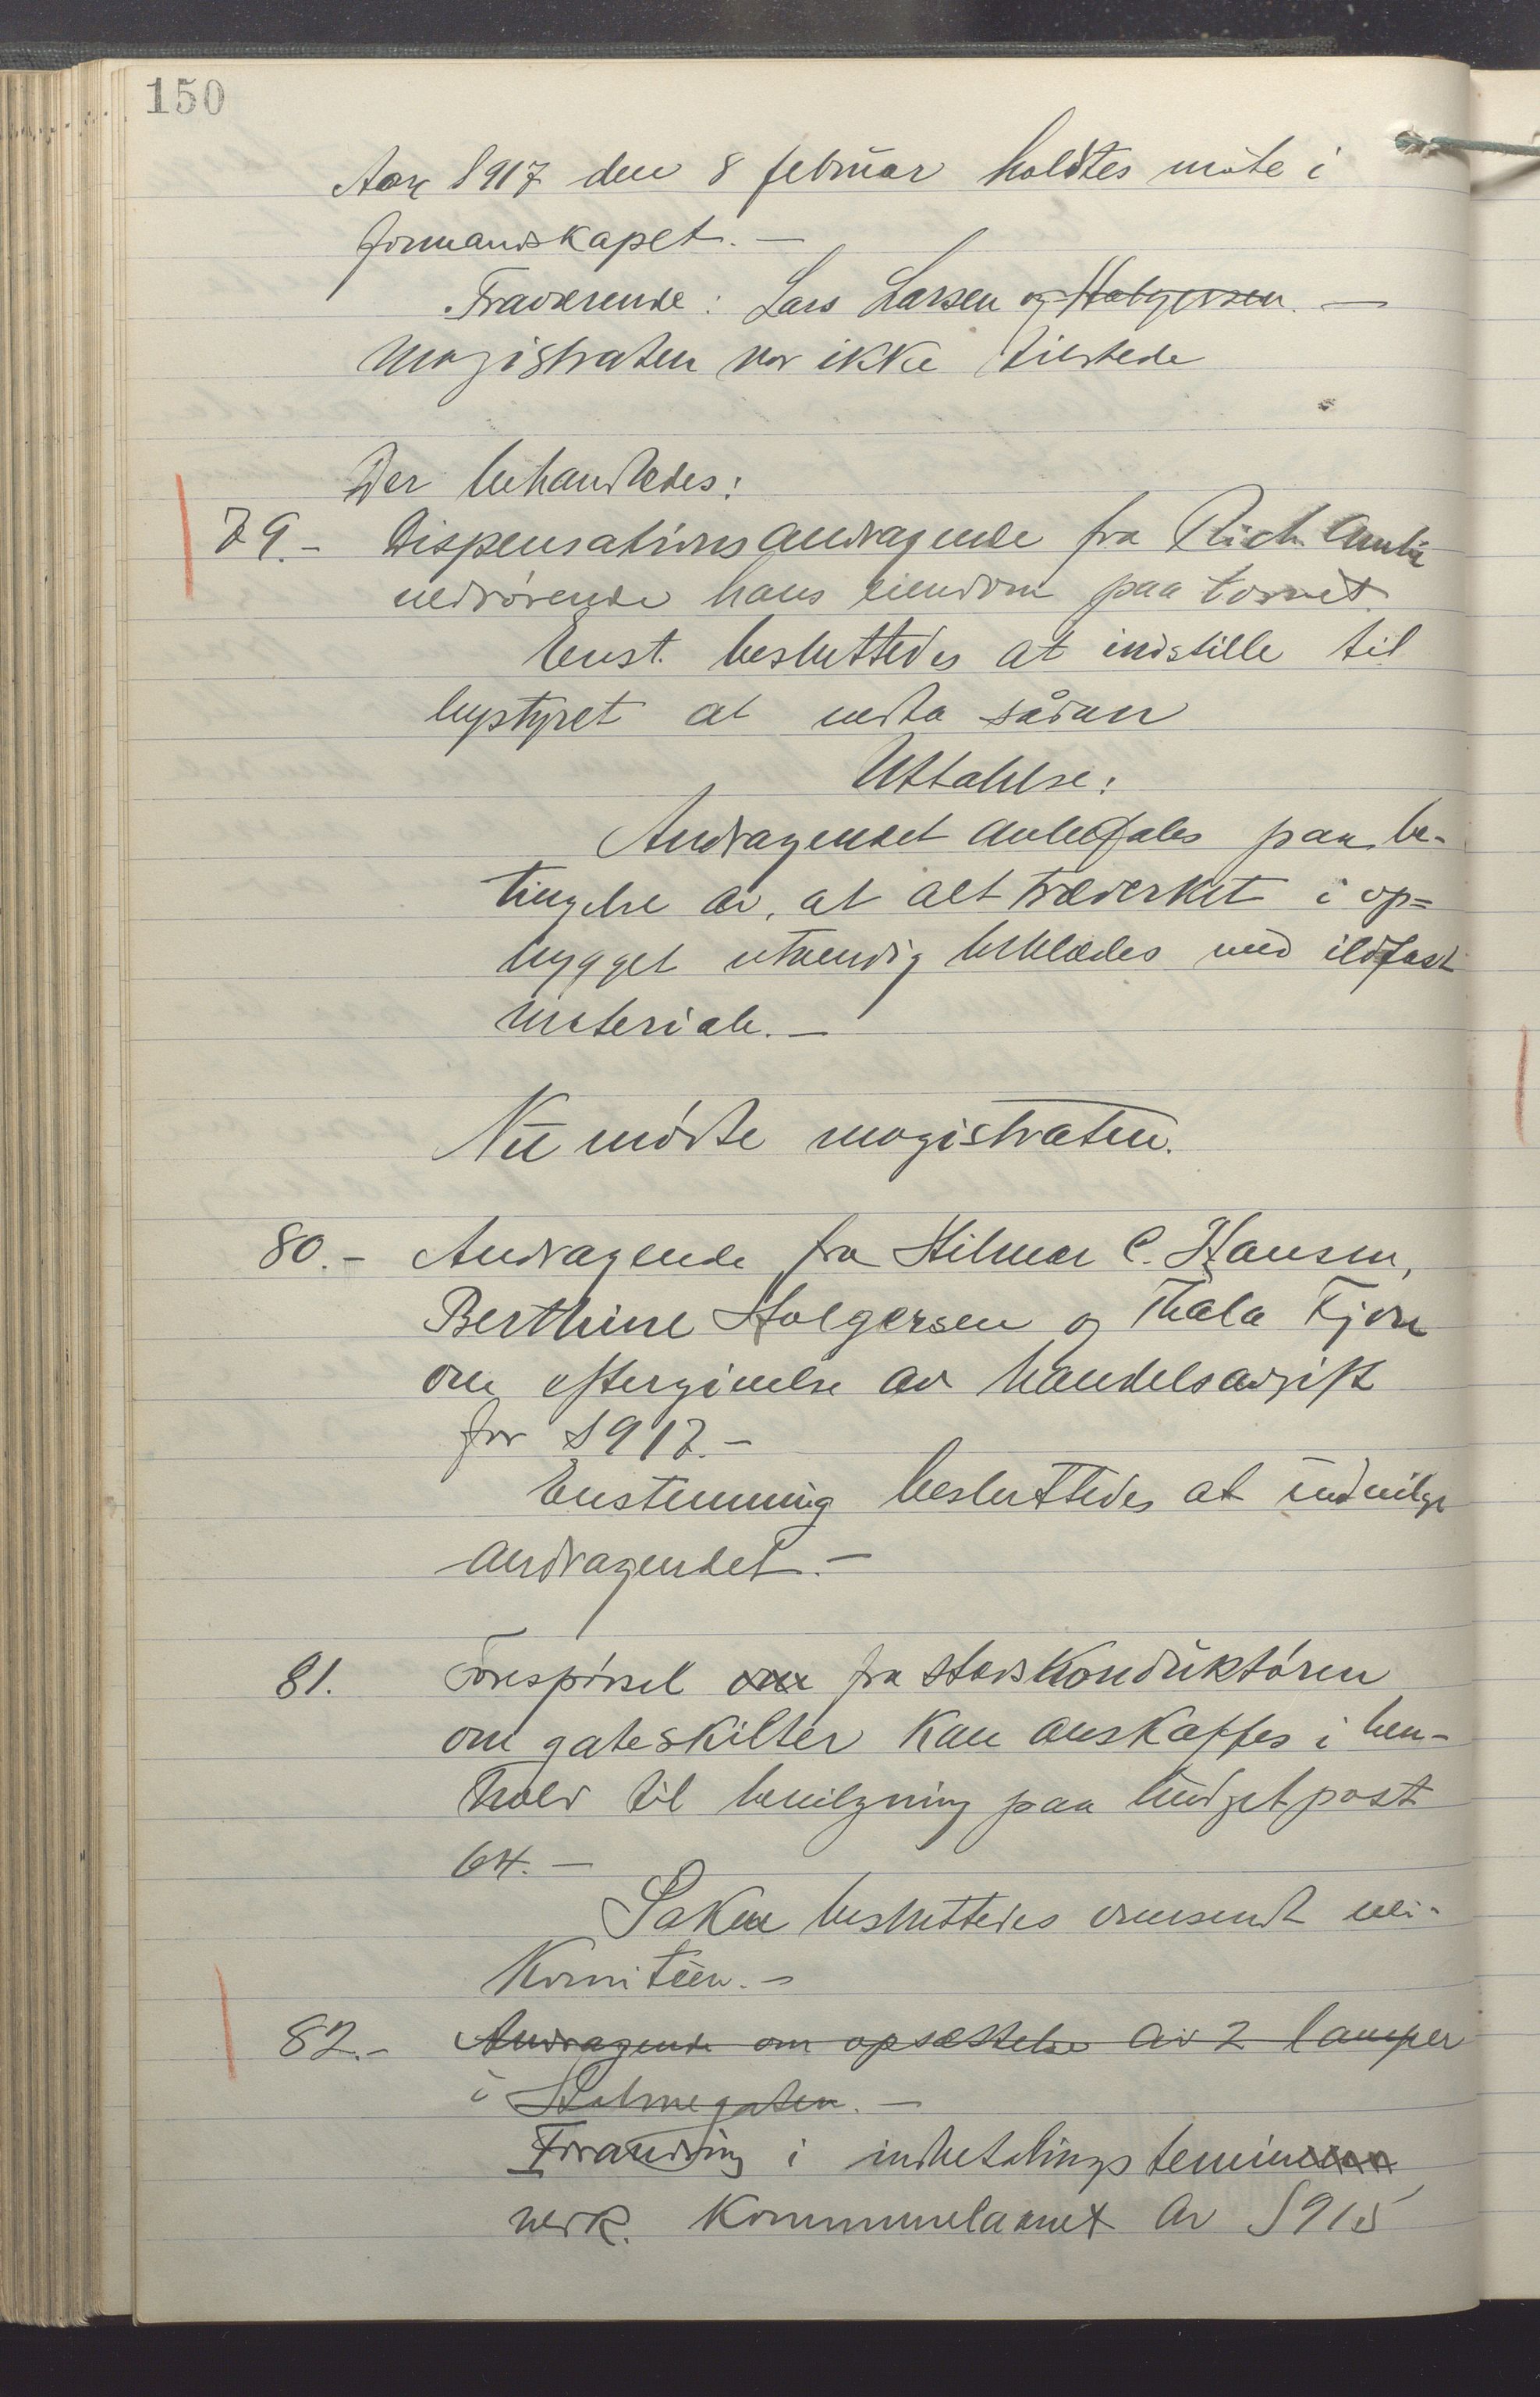 150
Aar 1917 den 8 februar holdtes møte i
formandskapet. —
Fraværende: Lars Larsen og Holgersen. —
Magistraten var ikke tilstede
Der behandledes:
79. - Dispensationsandragende fra Rich.
vedrørende hans eiendom paa torvet.
Enst. besluttedes at indstille til
bystyret at vedta sådan
Uttalelse:
Andragendet anbefales paa be-
tingelse av, at alt træverket i op=
bygget utvendig beklædes med ildfast
materiale. —
Nu mødte magistraten.
80. - Andragende fra Hilmar C. Hansen,
Berthine Holgersen og Thala Fjon
om eftergivelse av handelsavgift
for 1917. -
Enstemmig besluttedes at indvilge
andragendet. —
81. Forespørsel om fra stadskonduktøren
om gateskilter kan anskaffes i hen-
hold til bevilgning paa budgetpost
64. —
Saken besluttedes oversendt vei-
komiteen. -
82. - Andragende om opsættelse av 2 lamper
i Holmegaten. —
Forandring i indbetalingstermin
vedr. kommunelaanet av 1915